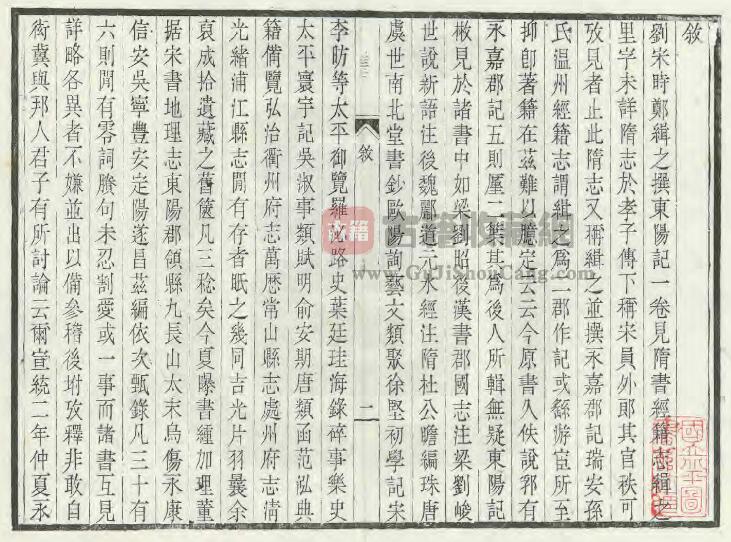 敘
劉宋時鄭緝之撰東陽記一卷見隋書經籍志緝之
里字未詳隋志於孝子傳下稱宋員外郎其官秩可
攷見者止此隋志又稱緝之並撰永嘉郡記瑞安孫
氏温州經籍志謂緝之爲二郡作記或繇游宦所至
抑卽著籍在茲難以臆定云云今原書久佚說郛有
永嘉郡記五則厪二葉其爲後人所輯無疑東陽記
散見於諸書中如梁劉昭後漢書郡國志注梁劉峻
世說新語注後魏酈道元水經注隋杜公瞻編珠唐
虞世南北堂書鈔歐陽詢藝文類聚徐堅初學記宋
敘
二
李昉等太平御覽羅泌路史葉廷珪海錄碎事樂史
太平寰宇記吳淑事類賦明俞安期唐類函范泓典
籍備覽弘治衢州府志萬厯常山縣志處州府志淸
光緒浦江縣志閒有存者眂之幾同吉光片羽曩余
裒成拾遺藏之舊篋凡三稔矣今夏曝書緟加理董
据宋書地理志東陽郡領縣九長山太末烏傷永康
信安吳寧豐安定陽遂昌茲編依次甄錄凡三十有
六則閒有零詞賸句未忍割愛或一事而諸書互見
詳略各異者不嫌並出以備參稽後坿攷釋非敢自
衒冀與邦人君子有所討論云爾宣統二年仲夏永
古籍
古籍收藏網
www.GuJiShouCang.com